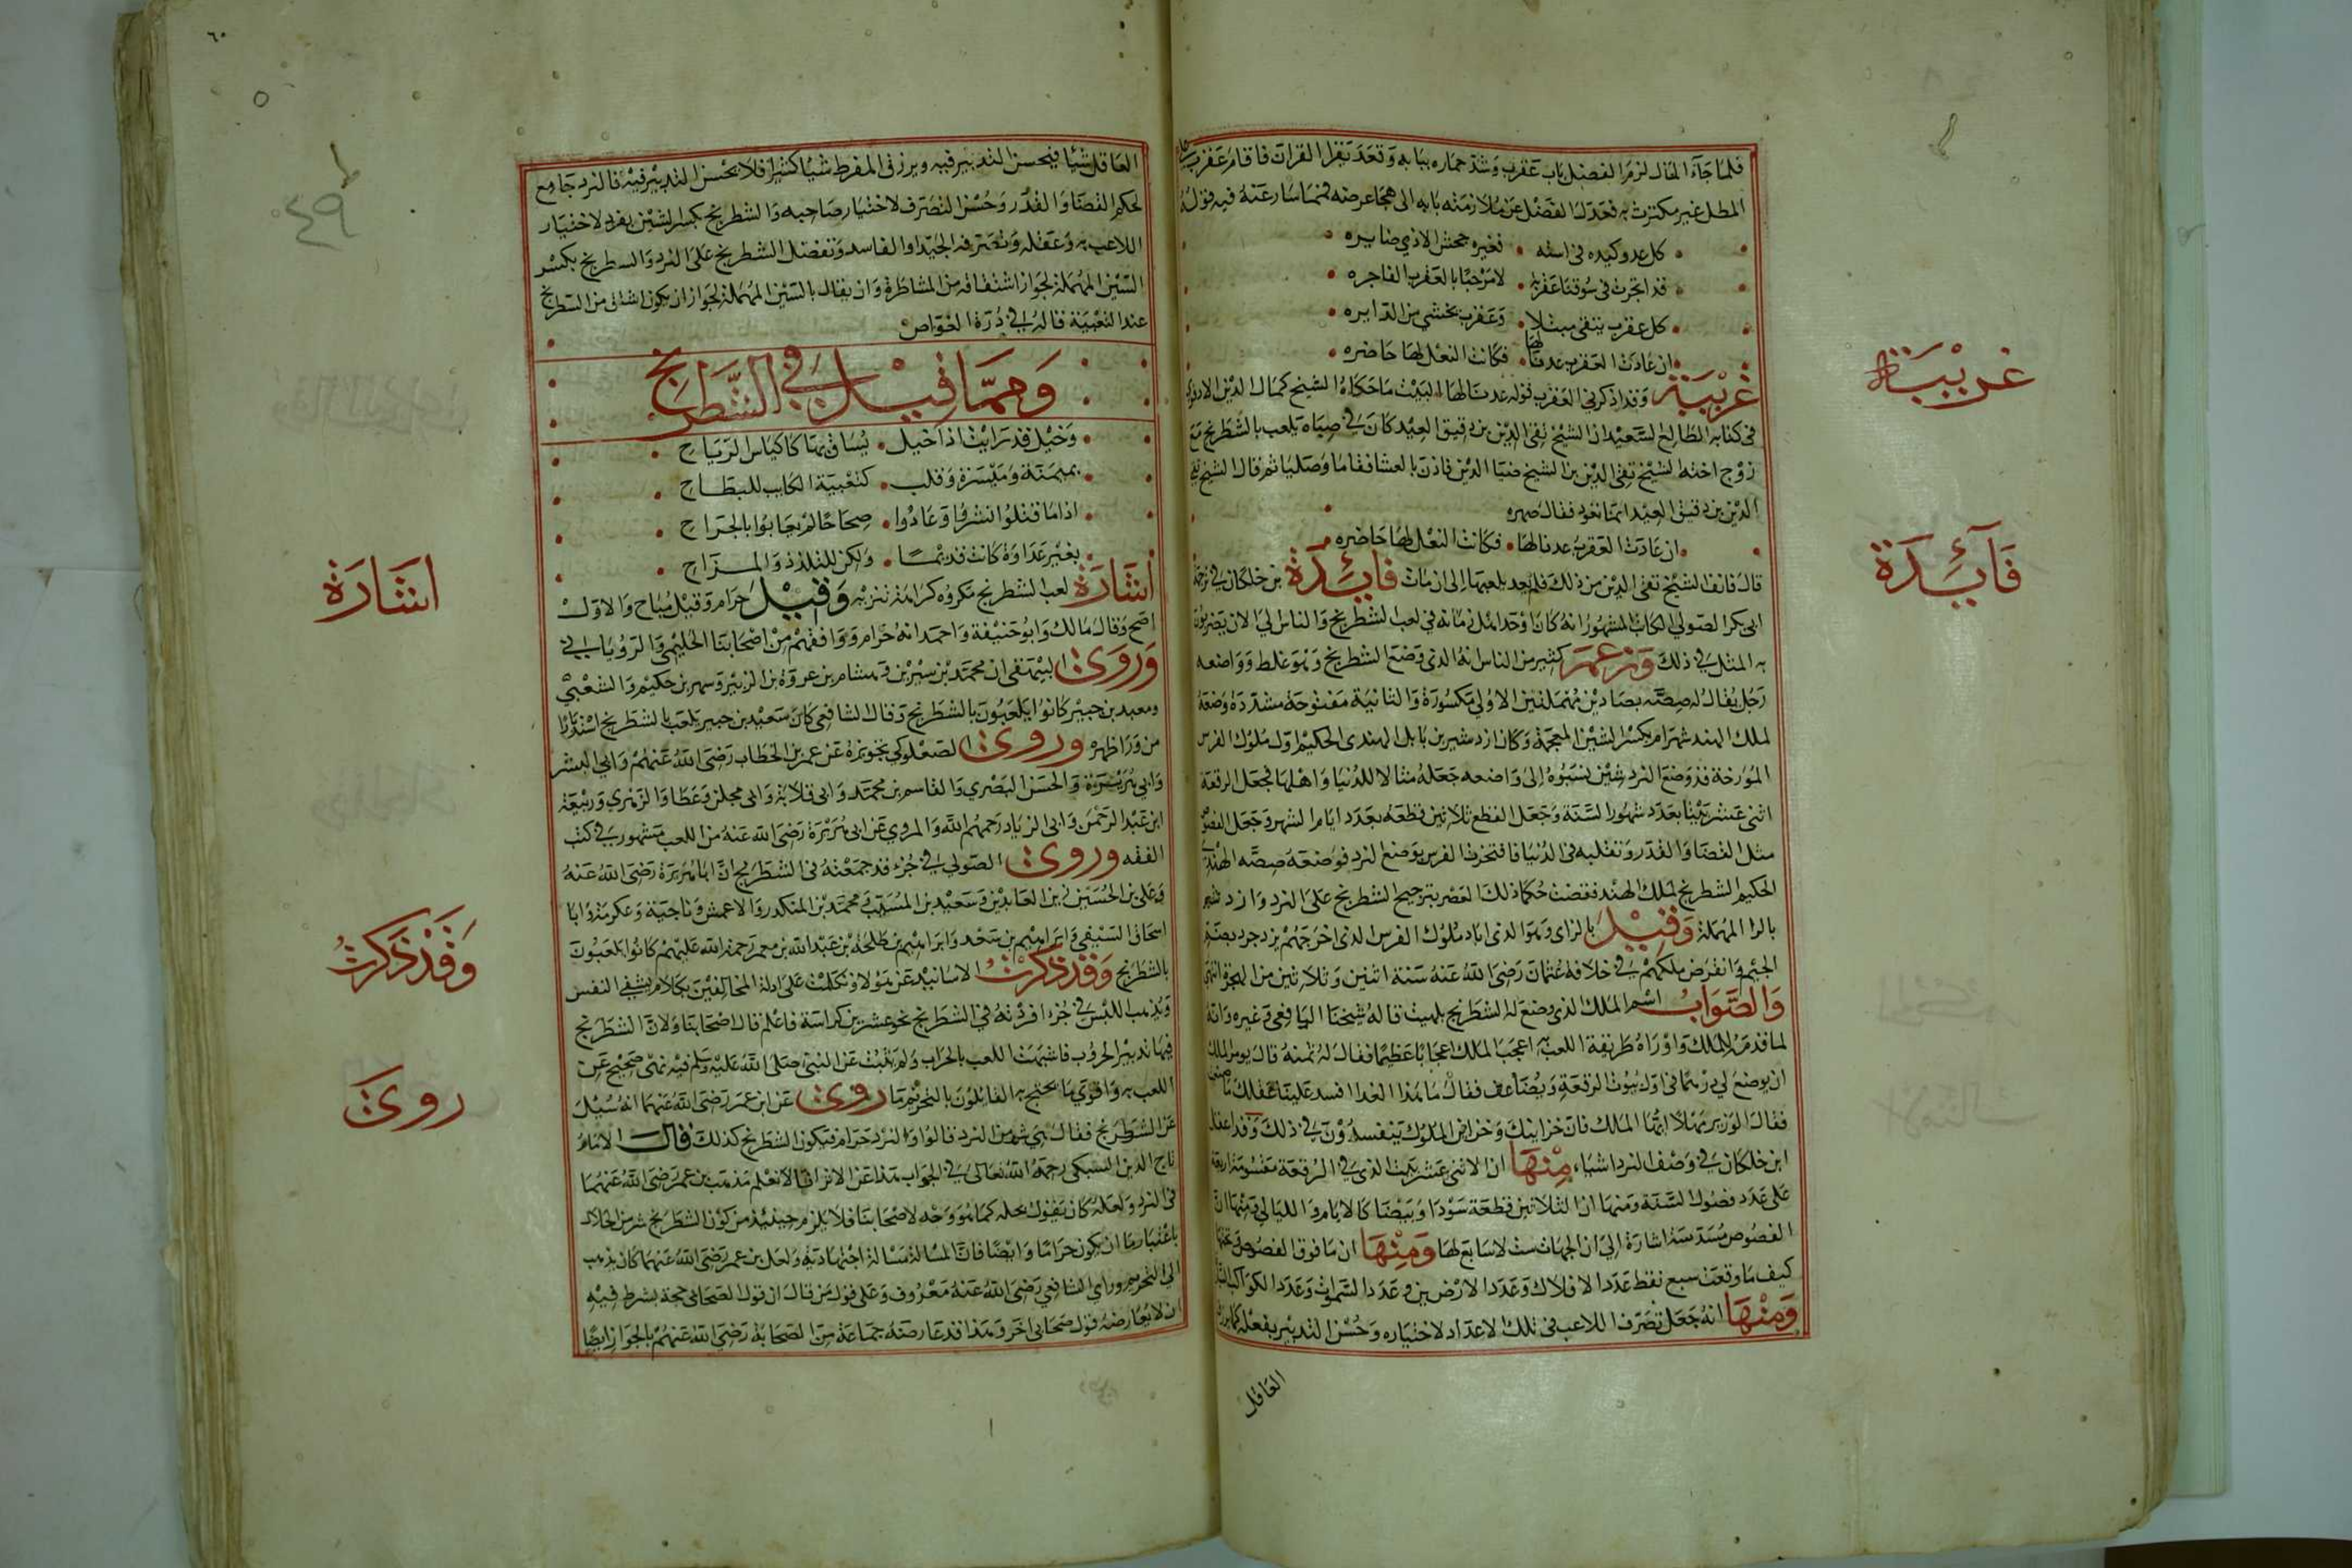 فلما جآء المال لزم الفضل باب عقرب وشد حماره ببابه وقعد يقرا القران فاقام عقرب على
المطل غير مكترث به فعدل الفضل عن ملازمته بابه الى هجا عرضه فمما سار عنه فيه قوله
كل عدو كيده فى استه . فغيره جحش الاذي ضايره
قد اتجرت فى سوقنا عقرب . لا مرحبًا بالعقرب الفاجره
كل عقرب يتقى مبتلا . وعقرب يخشي من الدايره
ان عادت العقرب عدنا لها . فكانت النعل لها حاضره
غريبة وقد اذكرني العقرب قوله عدنا لها البيت ما حكاه الشيخ كمال الدين الادفوي
فى كتابه الطالع السعيد ان الشيخ تقى الدين بن دقيق العيد كان في صباه يلعب بالشطرنج مع
زوج اخته الشيخ تقي الدين بن الشيخ ضيا الدين فاذن بالعشا فقاما وصليا ثم قال الشيخ تقي
الدين بن دقيق العيد اما نعود فقال صهره
ان عادت العقرب عدنا لها . فكانت النعل لها حاضره
قال فانف الشيخ تقى الدين من ذلك فلم يعد يلعبها الى ان مات فايدة بن خلكان في ترجمة
ابى بكر الصولي الكاتب المشهور انه كان اوحد اهل زمانه في لعب الشطرنج والناس الي الان يضربون
به المثل في ذلك وزعم كثير من الناس انه الذي وضع الشطرنج وهو غلط وواضعه
رجل يقال له صصه بصادين مهملتين الاولي مكسورة والثانية مفتوحة مشددة وضعه
لملك الهند شهرام بكسر الشين المعجمة وكان ازدشير بن بابك الهندى الحكيم اول ملوك الفرس
المؤرخة قد وضع النرد شين نسبوه الى واضعه جعله مثالا للدنيا واهلها فجعل الرقعة
اثنى عشر بيتًا بعدد شهور السنة وجعل القطع ثلاثين قطعه بعدد ايام الشهر وجعل الفصوص
مثل القضا والقدر وتقلبه فى الدنيا فافتخرت الفرس بوضع النرد فوضعه صصه الهندي
الحكيم الشطرنج لملك الهند فقضت حكما ذلك العصر بترجيح الشطرنج على النرد وازد شير
بالرا المهملة وقيل بالزاى وهو الذى اباد ملوك الفرس الذى اخرجتهم يزدجرد
الجيم وانقرض ملكهم في خلافة عثمان رضى الله عنه سنة اثنين وثلاثين من الهجرة انتهى
والصواب اسم الملك الذى وضع له الشطرنج بلهيث قاله شيخنا اليافعي وغيره وانه
لما قدمه للملك واوراه طريقة اللعب به اعجب الملك اعجابا عظيما فقال له تمنه قال يومر الملك
ان يوضع لي درهما فى اول بيوت الرقعة ويضاعف فقال ما هذا الغدا افسد علينا عقلك ما صنعت
فقال الوزير مهلا ايها الملك فان خزاينك وخزاين الملوك يتنفسدون في ذلك وقد اغفل
ابن خلكان في وصف النرد اشياء، منها ان الاثنى عشر بيت الذي في الرقعة مقسومة اربعة
على عدد فصول السنة ومنها ان الثلاثين قطعة سودا وبيضا كالايام والليالي ومنها ان
الفصوص مسدسة اشارة الى ان الجهات ست لا سابع لها ومنها ان ما فوق الفصوص وتحتها
كيف ما وقعت سبع نقط عدد الافلاك وعدد الارضين وعدد السموات وعدد الكواكب السيارة
ومنها انه جعل تصرف اللاعب فى تلك الاعداد لاختياره وحسن التدبير بفعله كما يرزق
العاقل
غريبة
فآيدة
٦٠
٤٩
العاقل شيًا فيحسن التدبير فيه ويرزق المفرط شيا كثيرا فلا يحسن التدبير فيه فالنرد جامع
لحكم القضا والقدر وحسن التصرف لاختيار صاحبه والشطرنج بكسر الشين يفرد لاختيار
اللاعب به وعقله وتصرفه الجيد او الفاسد وتفضل الشطرنج على النرد والسطرنج بكسر
السين المهملة لجواز اشتقاقه من المشاطرة وان يقال بالسين المهملة لجواز ان يكون اشتق من السطرنج
عند التعبية قاله في درة الغواص
ومما قيل فى الشطرنج
وخيل قد رايت اذا خيل . يساق بها كاكياس الرياح
بميمنة وميسرة وقلب . كتعبية الكتاب للبطاح
اذا ما قتلوا نشروا وعادوا . صحاحًا لم يعابوا بالجراح
بغير عداوة كانت قديمًا . ولكن للتلذذ والمزاح
اشارة لعب الشطرنج مكروه كراهة تنزيه وقيل حرام وقيل مباح والاول
اصح وقال مالك وابو حنيفة واحمد انه حرام ووافقهم من اصحابنا الحليمي والروياني
وروى البيهقى ان محمد بن سيرين وهشام بن عروة بن الزبير وبهز بن حكيم والشعبي
ومعبد بن جبير كانوا يلعبون بالشطرنج وقال الشافعى كان سعيد بن جبير يلعب بالشطرنج استدبارا
من ورا ظهره وروى الصعلوكي تجويزه عن عمر بن الخطاب رضى الله عنهم وابي اليسر
وابي هريرة والحسن البصري والقاسم بن محمد وابى قلابة وابى مجلز وعطا والزهري وربيعة
ابن عبد الرحمن وابى الزياد رحمهم الله والمروي عن ابى هريرة رضى الله عنه من اللعب مشهور في كتب
الفقه وروى الصولي في جزء قد جمعته فى الشطرنج ان ابا هريرة رضى الله عنه
وعلى بن الحسين زين العابدين وسعيد بن المسيب ومحمد بن المنكدر والاعمش وناجية وعكرمة وابا
اسحاق السبيعي وابراهيم بن سعد وابراهيم بن طلحة بن عبد الله بن معمر رحمة الله عليهم كانوا يلعبون
بالشطرنج وقد ذكرت الاسانيد عن هولاء وتكلمت على ادلة المخالفين بكلام يشفي النفس
ويذهب اللبس في جزء افردته في الشطرنج نحو عشرين كراسة فاعلم قال اصحابنا ولان الشطرنج
فيها تدبير الحروب فاشبهت اللعب بالحراب ولم يثبت عن النبى صلى الله عليه وسلم فيه نهى صحيح عن
اللعب به واقوي ما يحتج به القائلون بالتحريم ما روى عن ابن عمر رضى الله عنهما انه سئل
عن الشطرنج فقال هي شر من النرد قالوا والنرد حرام فيكون الشطرنج كذلك قال الامام
تاج الدين السبكى رحمه الله تعالى في الجواب هذا عن الاثر انا لا نعلم مذهب بن عمر رضى الله عنهما
فى النرد ولعله كان يقول بحله كما هو وجه لاصحابنا فلا يلزم حينئذ من كون الشطرنج شر من الحلال
باعتبار ما ان يكون حرامًا وايضًا فان المسالة مسالة اجتهادية ولعل بن عمر رضى الله عنهما كان يذهب
الى التحريم وراي الشافعي رضى الله عنه معروف وعلى قول من قال ان قول الصحابى حجة بشرط فيه
ان لا يعارضه قول صحابى اخر وهذا قد عارضه جماعة من الصحابة رضى الله عنهم بالجواز ايضًا
اشارة
وقد ذكرت
روى